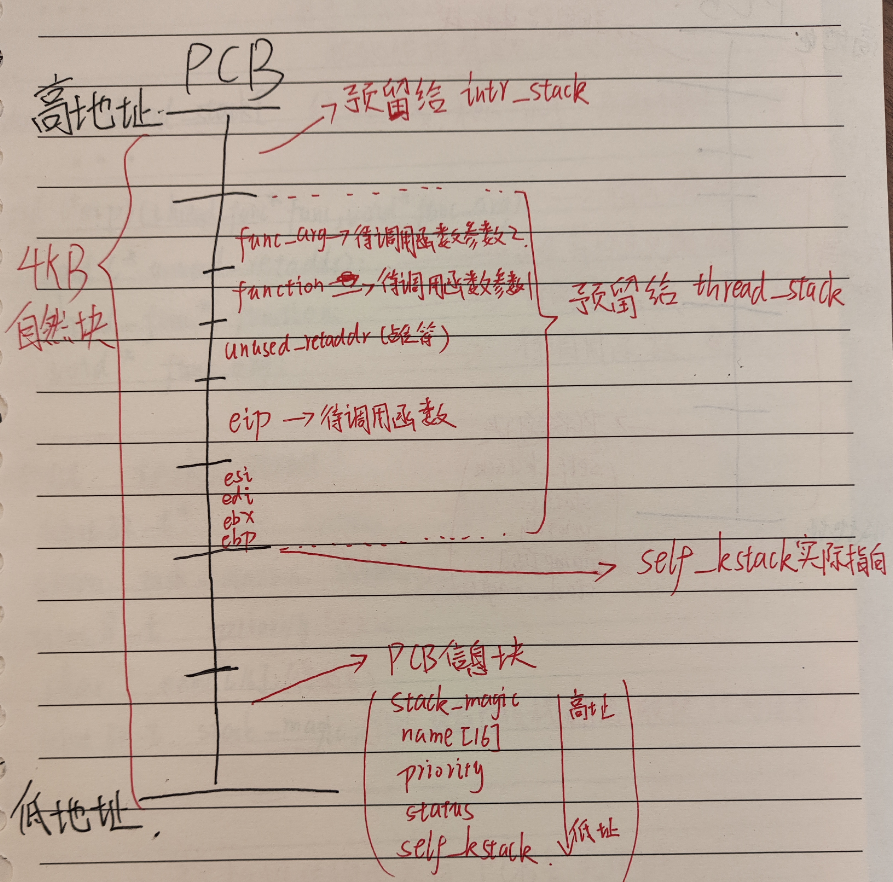 PCB
高地址
预留给 intr_stack
func_arg→待调用函数参数2.
4KB
自然块
function →待调用函数参数1
预留给 thread_stack
unused_retaddr (占位符)
eip →待调用函数
esi
edi
ebx
ebp
self_kstack实际指向
PCB信息块
stack_magic
高址
name [16]
priority
status
低址
self_kstack.
低地址.